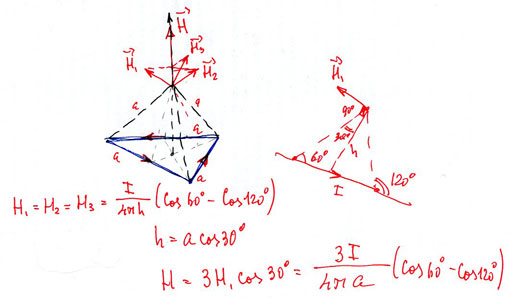 H⃗
H⃗₁ H⃗₃ H⃗₂
a a
a a
a
H⃗₁
90°
30°
h
60°
120°
I
H₁ = H₂ = H₃ = I/4πh (Cos 60° − Cos 120°)
h = a cos 30°
H = 3H₁ cos 30° = 3I/4πa (Cos 60° − Cos 120°)